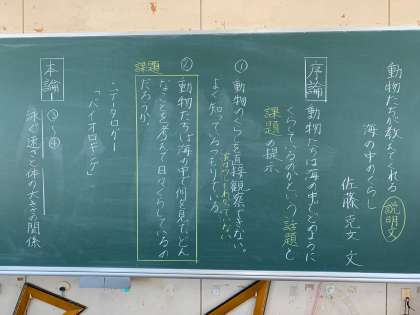 動物たちが教えてくれる
海の中のくらし
説明文
佐藤克文 文
序論
動物たちは海の中でどのように
くらしているのかという話題と
課題の提示
①
動物のくらしを直接観察できない。
よく知っているつもりでいる。
②
課題
動物たちは海の中で何を見、どん
なことを考えて日々くらしているの
だろうか。
・データロガー
「バイオロギング」
本論1
③~④
泳ぐ速さと体の大きさの関係